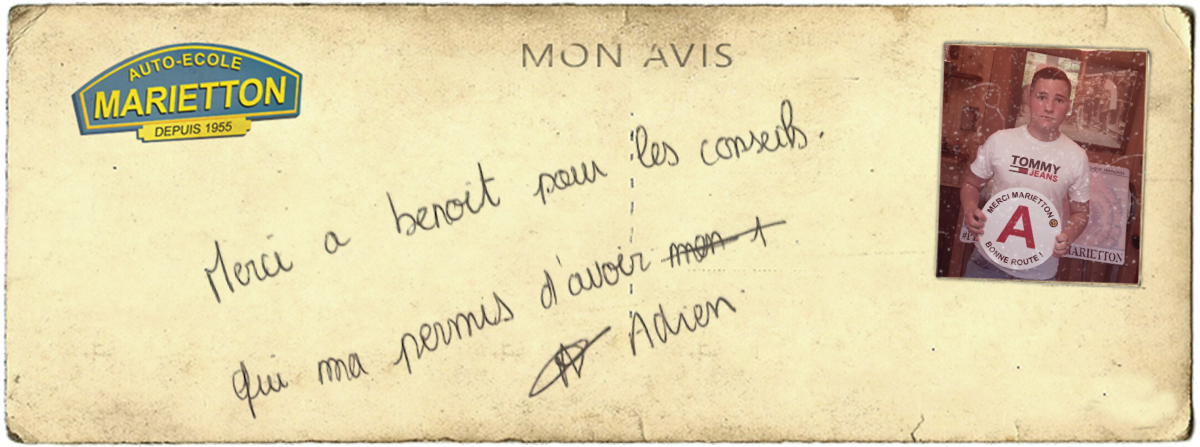 AUTO-ECOLE
MARIETTON
DEPUIS 1955
MON AVIS
Merci a benoit pour les conseils.
qui ma permis d'avoir mon 1
Adrien
TOMMY
JEANS
MERCI MARIETTON
A
BONNE ROUTE !
MARIETTON